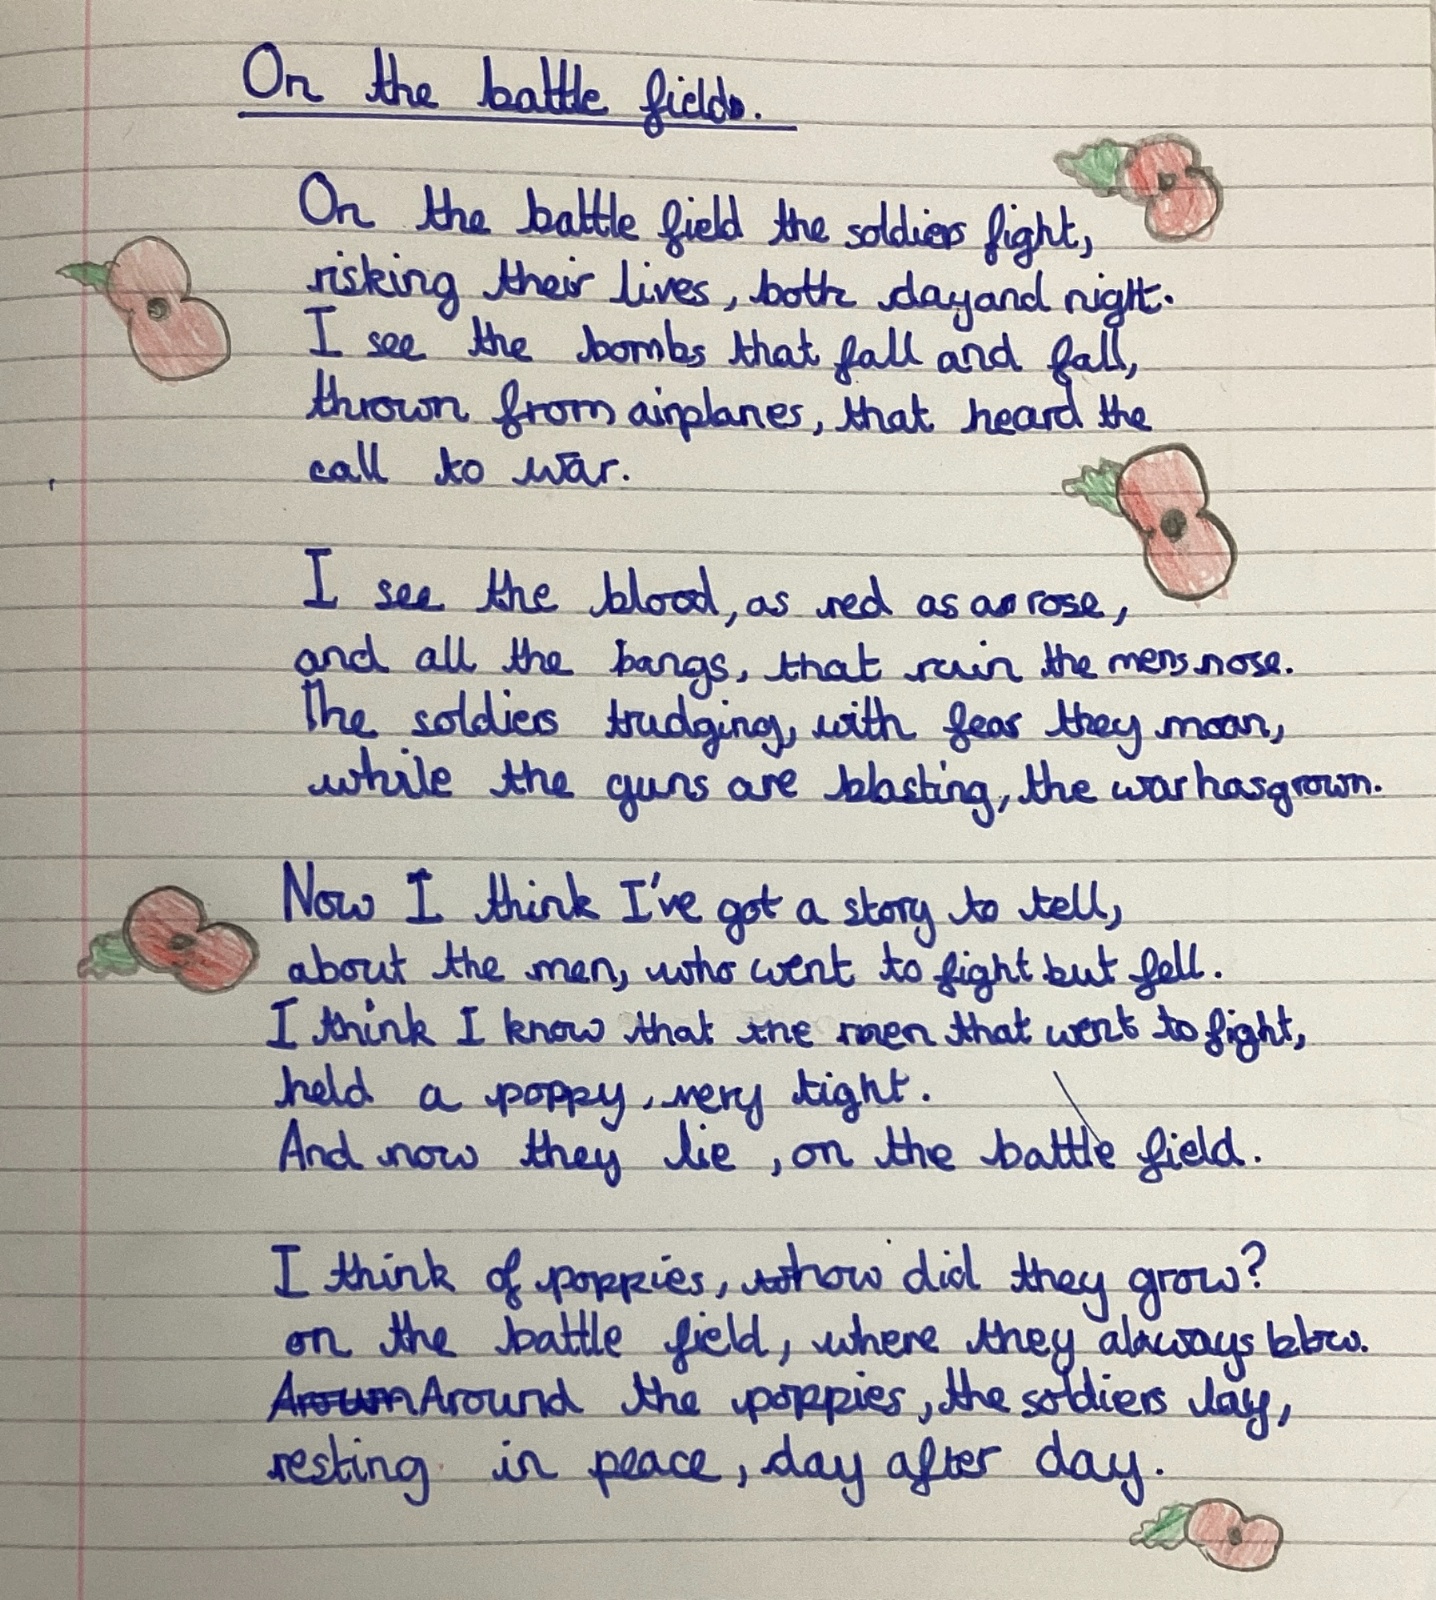 On the battle field.
On the battle field the soldiers fight,
risking their lives, both day and night.
I see the bombs that fall and fall,
thrown from airplanes, that heard the
call to war.
I see the blood, as red as a rose,
and all the bangs, that ruin the mens nose.
The soldiers trudging, with fear they moan,
while the guns are blasting, the war has grown.
Now I think I've got a story to tell,
about the men, who went to fight but fell.
I think I know that the men that went to fight,
held a poppy, very tight.
And now they lie, on the battle field.
I think of poppies, how did they grow?
on the battle field, where they always blow.
Around the poppies, the soldiers lay,
resting in peace, day after day.